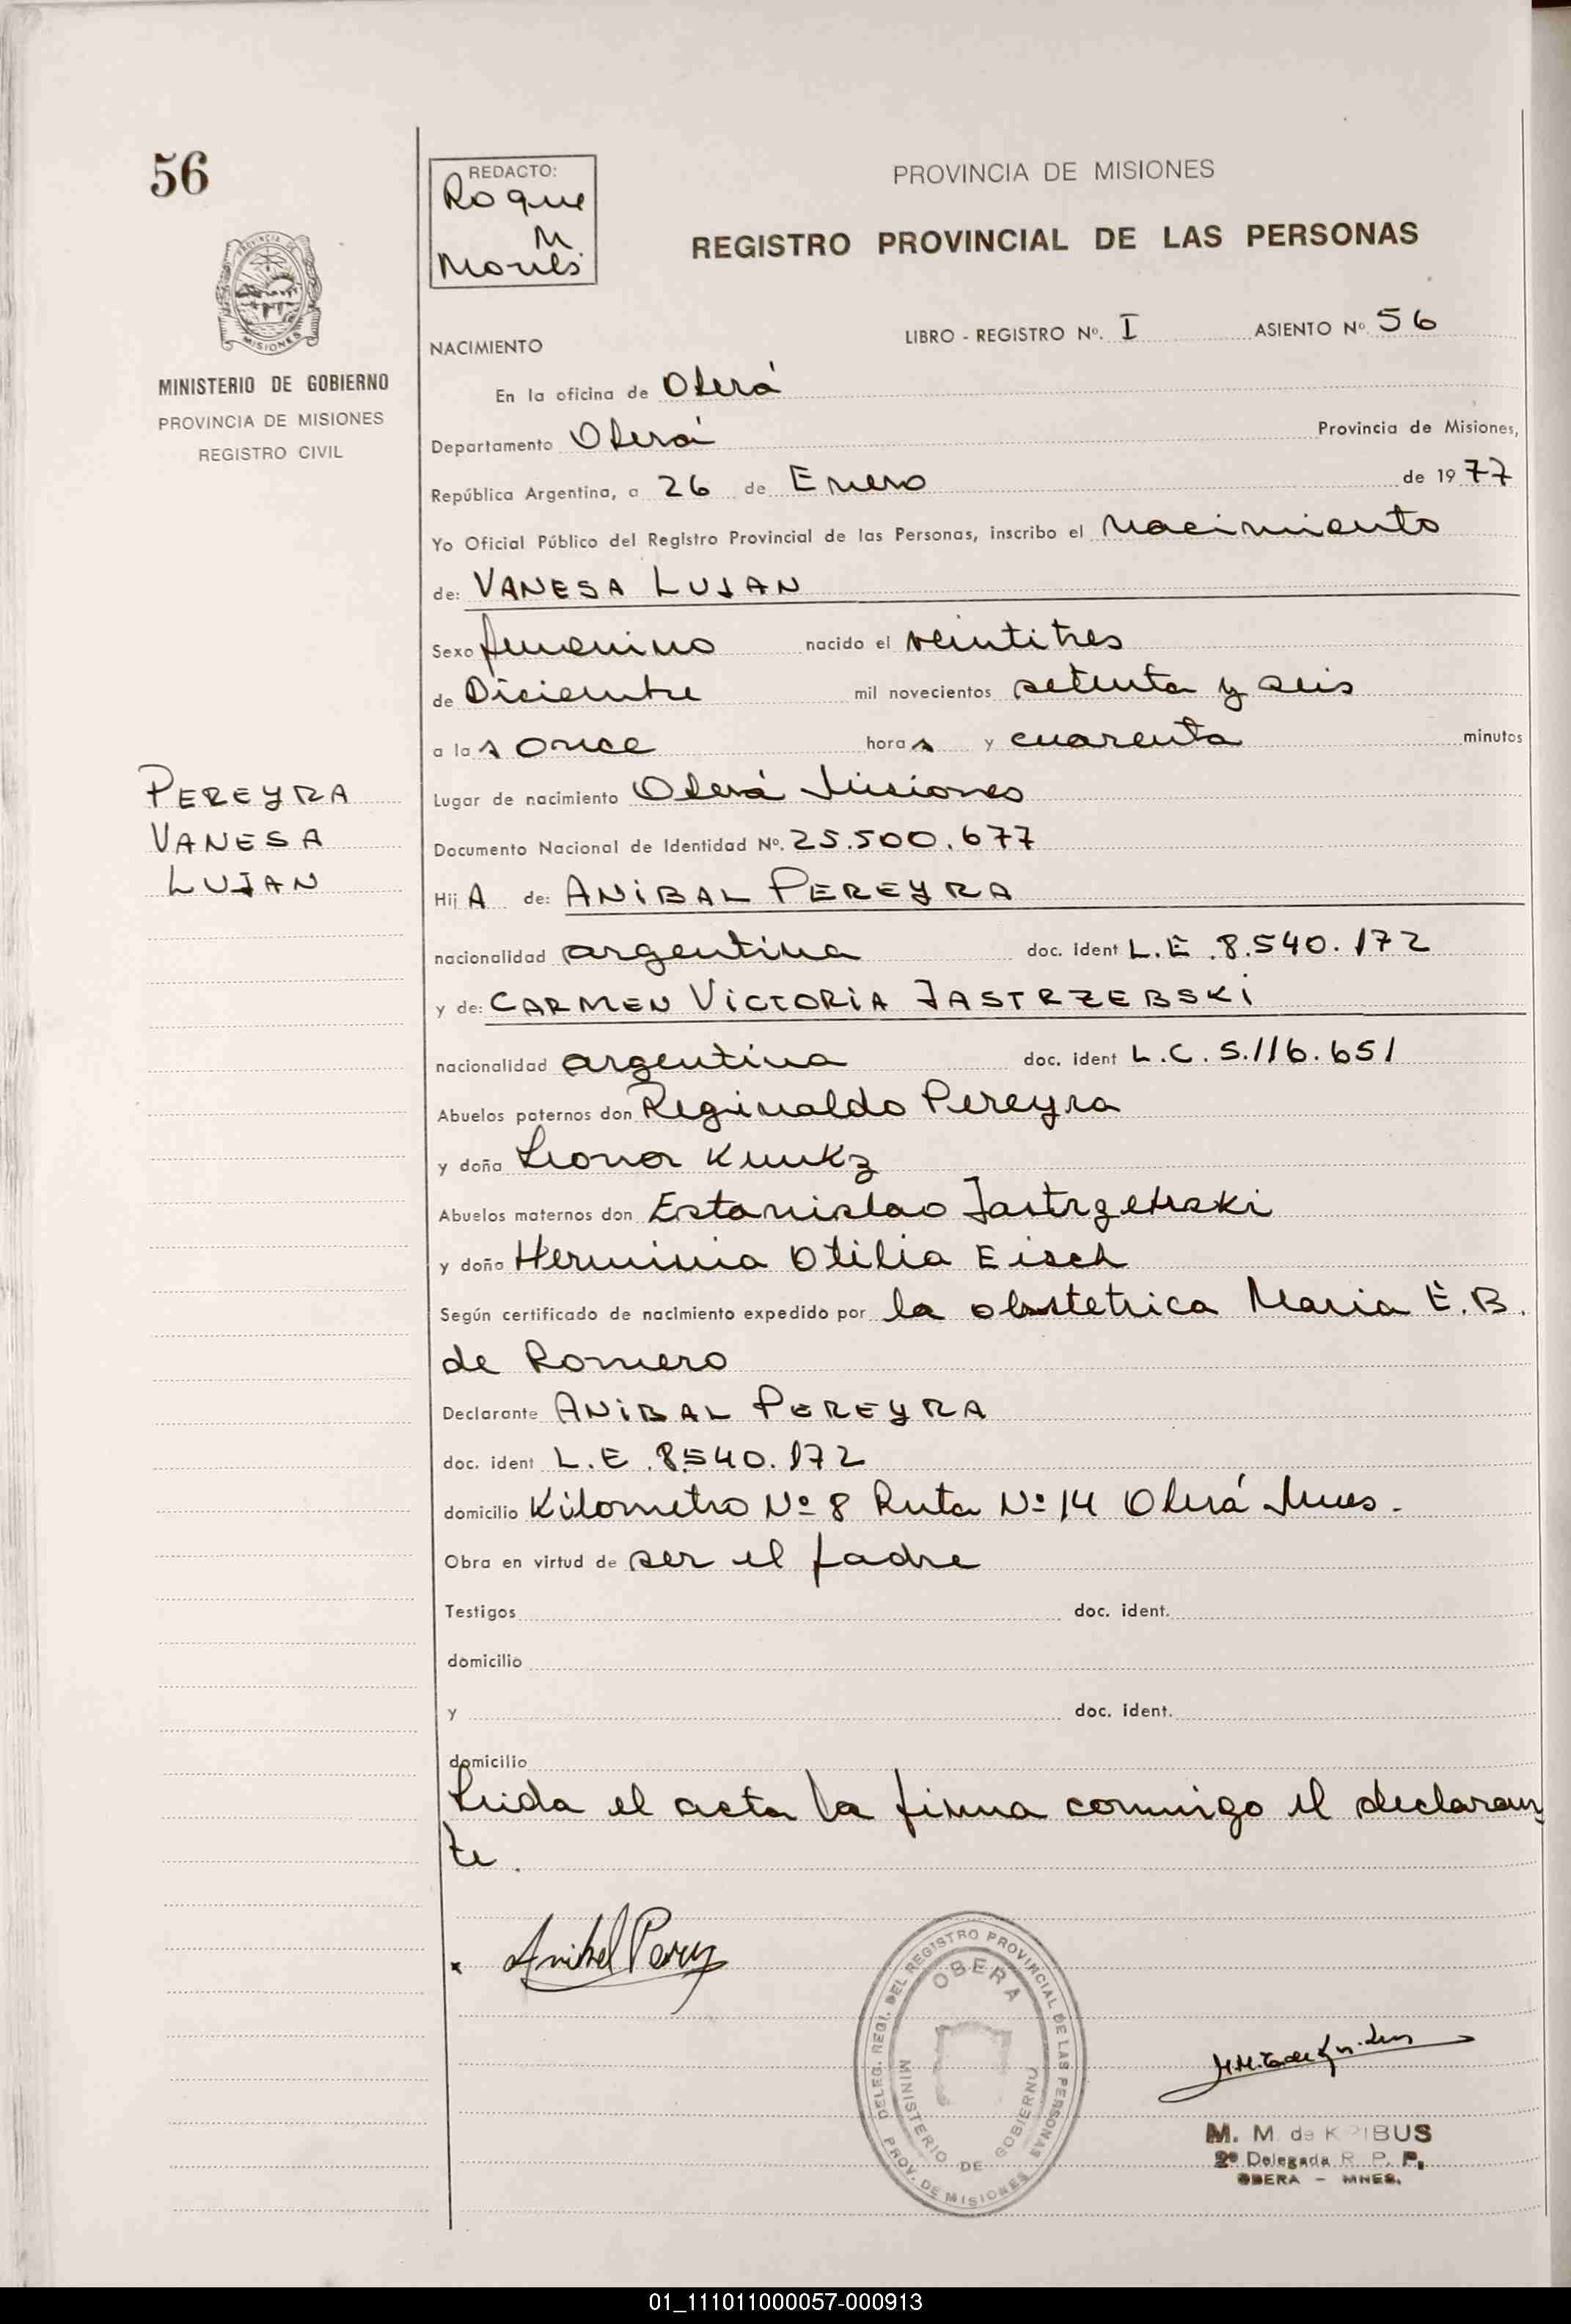 56
MINISTERIO DE GOBIERNO
PROVINCIA DE MISIONES
REGISTRO CIVIL
PEREYRA
VANESA
LUJAN
REDACTO:
Roque
M
PROVINCIA DE MISIONES
REGISTRO PROVINCIAL DE LAS PERSONAS
NACIMIENTO
LIBRO - REGISTRO Nº. I ASIENTO Nº. 56
En la oficina de Oberá
Departamento Oberá Provincia de Misiones,
República Argentina, a 26 de Enero de 1977
Yo Oficial Público del Registro Provincial de las Personas, inscribo el Nacimiento
de: VANESA LUJAN
Sexo femenino nacido el veintitres
de Diciembre mil novecientos setenta y seis
a las once horas y cuarenta minutos
Lugar de nacimiento Oberá Misiones
Documento Nacional de Identidad Nº. 25.500.677
HijA de: ANIBAL PEREYRA
nacionalidad argentina doc. ident L.E. 8.540.172
y de: CARMEN VICTORIA JASTRZEBSKI
nacionalidad argentina doc. ident L.C. 5.116.651
Abuelos paternos don Reginaldo Pereyra
y doña Leonor
Abuelos maternos don Estanislao Jastrzebski
y doña Herminia Otilia Eisch
Según certificado de nacimiento expedido por la obstetrica Maria E.B.
de Romero
Declarante ANIBAL PEREYRA
doc. ident L.E. 8.540.172
domicilio Kilometro Nº 8 Ruta Nº 14 Oberá Mnes.
Obra en virtud de ser el padre
Testigos doc. ident.
domicilio
y doc. ident.
domicilio
Leida el acta la firma conmigo el declaran
te.
Anibal
DELEG. REGI. DEL REGISTRO PROVINCIAL DE LAS PERSONAS
OBERA
MINISTERIO DE GOBIERNO
PROV. DE MISIONES
M. M. de KRIBUS
2º Delegada R. P. P.
OBERA - MNES.
01_111011000057-000913